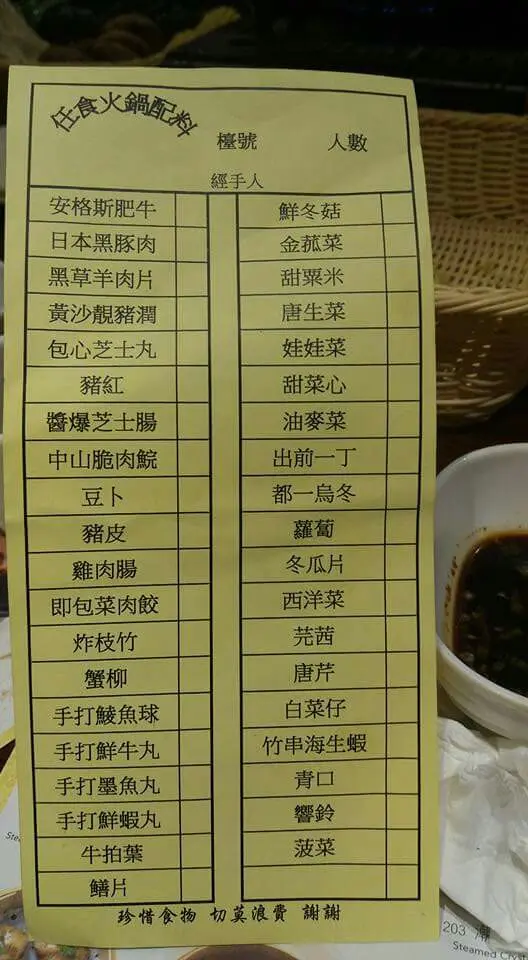 任食火鍋配料
檯號 人數
經手人
安格斯肥牛
日本黑豚肉
黑草羊肉片
黃沙靚豬潤
包心芝士丸
豬紅
醬爆芝士腸
中山脆肉鯇
豆卜
豬皮
雞肉腸
即包菜肉餃
炸枝竹
蟹柳
手打鯪魚球
手打鮮牛丸
手打墨魚丸
手打鮮蝦丸
牛拍葉
鱔片
鮮冬菇
金菰菜
甜粟米
唐生菜
娃娃菜
甜菜心
油麥菜
出前一丁
都一烏冬
蘿蔔
冬瓜片
西洋菜
芫茜
唐芹
白菜仔
竹串海生蝦
青口
響鈴
菠菜
珍惜食物 切莫浪費 謝謝
203